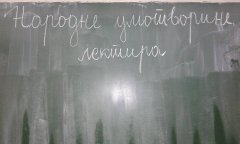 Народне умотворине
лектира